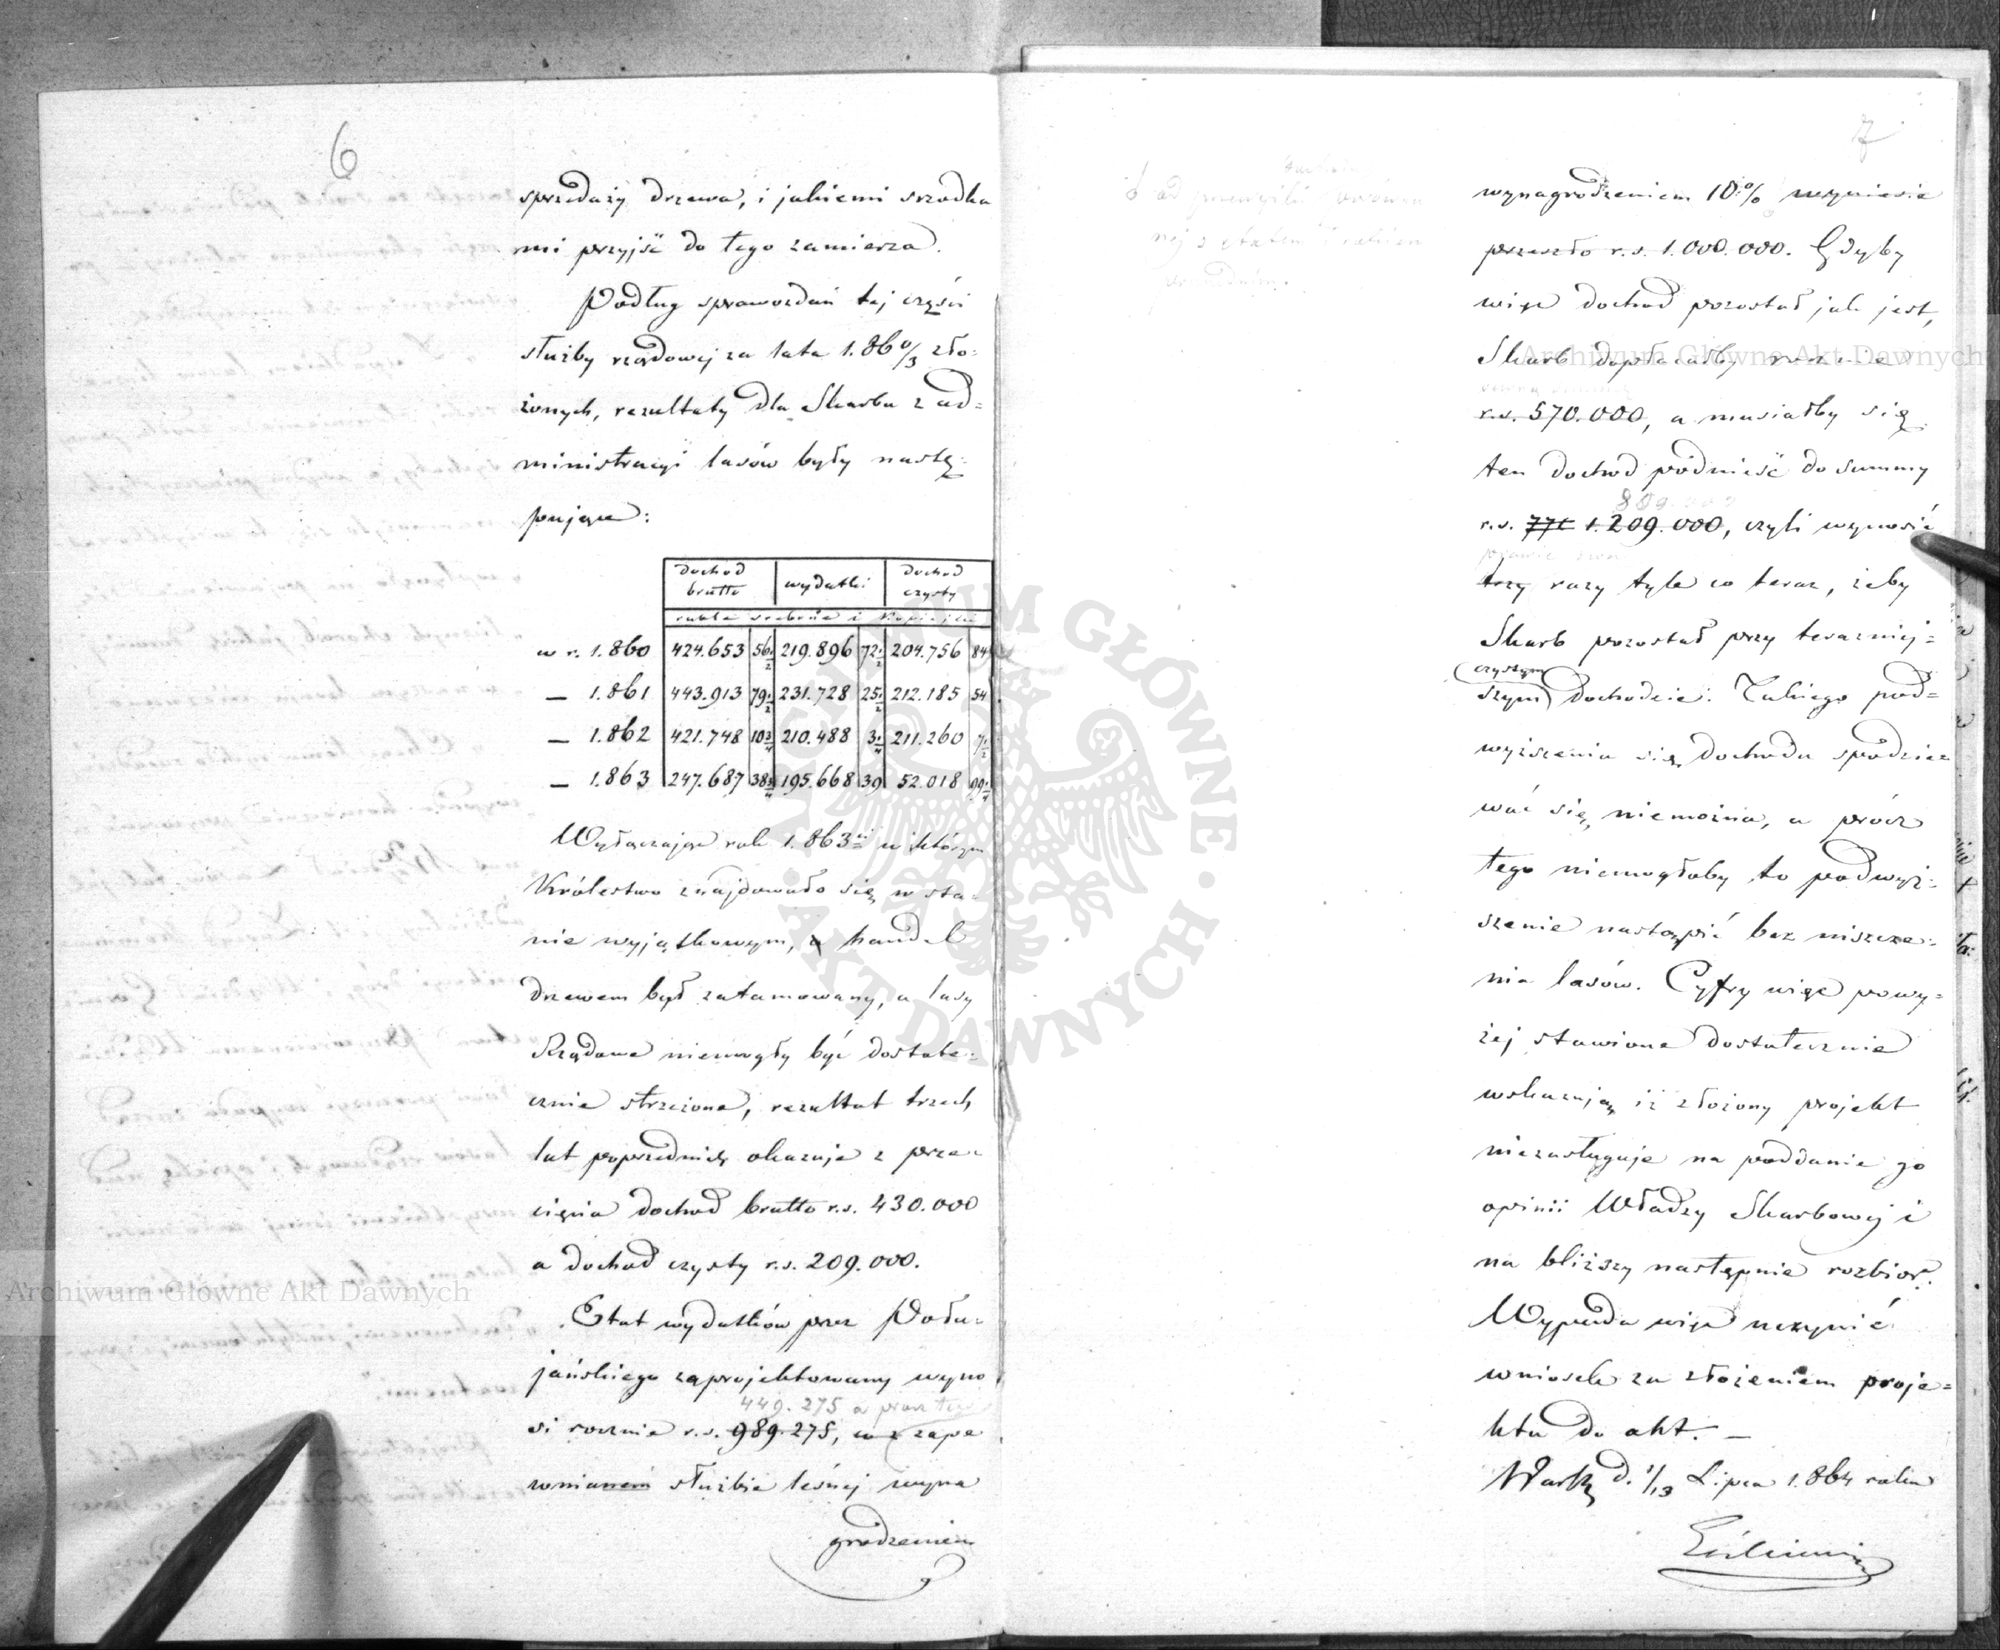 6
sprzedaży drzewa, i jakiemi srzodka
mi przyjść do tego zamierza.
Podług sprawozdań tej części
służby rządowej za lata 1.860/3 zło-
żonych, rezultaty dla Skarbu z ad-
ministracyi lasów były nastę-
pujące:
dochod brutto wydatki dochod czysty
ruble srebrne i kopiejki
w r. 1.860 424.653 56 1/2 219.896 72 1/2 204.756 84
— 1.861 443.913 79 1/2 231.728 25 1/2 212.185 54
— 1.862 421.748 10 3/4 210.488 3 1/4 211.260 7 1/2
— 1.863 247.687 38 1/4 195.668 39 52.018 99 1/4
Wyłączając rok 1.863 w którym
Królestwo znajdowało się w sta-
nie wyjątkowym, a handel
drzewem był zatamowany, a lasy
Rządowe niemogły być dostate-
cznie strzeżone, rezultat trzech
lat poprzednich okazuje z prze-
cięcia dochod brutto r.s. 430.000
a dochod czysty r.s. 209.000.
Etat wydatków przez Połu-
jańskiego zaprojektowany wyno
449.275 a przez tego
si rocznie r.s. 989.275, w z zape
wnianem służbie leśnej wyna
grodzeniem
7
wynagrodzeniem 10% wyniesie
przeszło r.s. 1.000.000. Gdyby
więc dochod pozostał jak jest,
Skarb dopłacałby rocznie
r.s. 570.000, a musiałby się
ten dochod podnieść do summy
809.000
r.s. 771 1.209.000, czyli wynosić
prawie dwa
trzy razy tyle co teraz, żeby
Skarb pozostał przy teraźniej-
czystym
szym dochodzie. Takiego pod-
wyższenia się dochodu spodzie-
wać się niemożna, a prócz
tego niemogłoby to podwyż-
szenie nastąpić bez niszcze-
nia lasów. Cyfry więc powy-
żej stawione dostatecznie
wskazują iż złożony projekt
niezasługuje na poddanie go
opinii Władzy Skarbowej i
na bliższy następnie rozbior.
Wypada więc uczynić
wniosek za złożeniem proje-
ktu do akt. —
Warsz d. 1/13 Lipca 1.864 roku
Archiwum Główne Akt Dawnych
Archiwum Główne Akt Dawnych
ARCHIWUM GŁÓWNE · AKT DAWNYCH ·